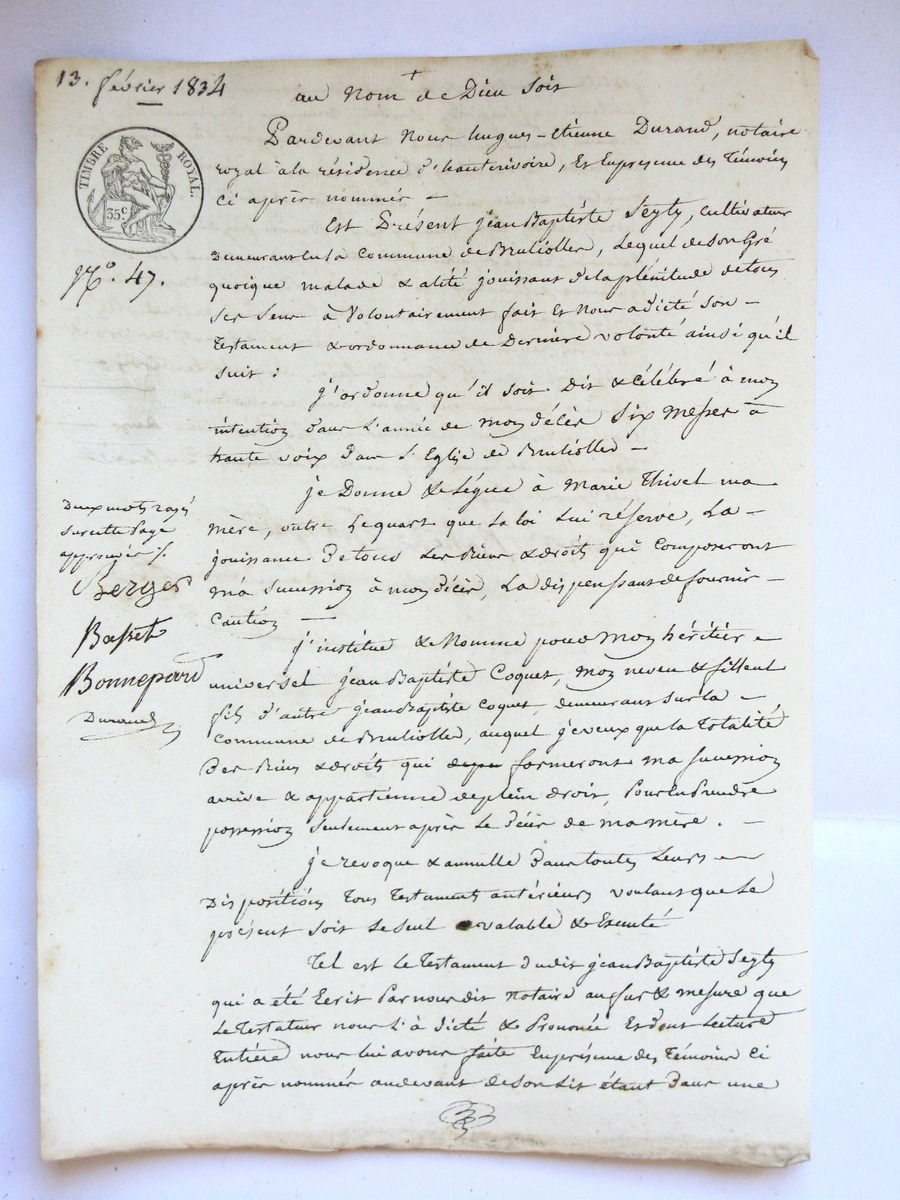 13. février 1834
au nom de Dieu soit
Pardevant Nous hugues-etienne Durand, notaire
royal à la résidence d'hauterivoire, Et En présence des Témoins
ci après nommés -
TIMBRE ROYAL.
35c
N.o 47.
Est Présent jean Baptiste Seyty, cultivateur
Demeurant En la commune de Brulioller, Lequel de son Gré
quoique malade & alité jouissant de la plénitude de tous
ses sens à Volontairement fait Et Nous a dicté son -
Testament & ordonnance de Dernière volonté ainsi qu'il
suit :
j'ordonne qu'il soit Dit & célébré à mon
intention dans l'année de mon décès Six Messes à
haute voix dans l'Eglise de Brulioller -
je Donne & Lègue à Marie Thivel ma
mère, outre Le quart que La loi Lui réserve, La -
jouissance De tous Les Biens & droits qui composeront
ma succession à mon décès, La dispenssant de fournir -
caution -
Deux mots rayés
sur cette Page
approuvés ./.
Berger
Basset
Bonnepard
Durand
j'institue & Nomme pour Mon héritier -
universel jean Baptiste Coquet, mon neveu & filleul
fils d'autre jean Baptiste Coquet, demeurant sur la -
commune de Brulioller, auquel je veux que la Totalité
Des Biens & droits qui formeront ma succession
arrive & appartienne de plein droit, Pour En Prendre
possession seulement après Le décès de ma mère. -
je revoque & annulle Dans toutes Leurs -
Dispositions Tous Testaments antérieurs voulant que Le
présent soit Le seul valable & Executé
Tel est Le Testament dudit jean Baptiste Seyty
qui a été Ecrit Par nous dit notaire au fur & mesure que
Le Testateur nous l'à dicté & Prononcé Et dont Lecture
Entière nous lui avons faite En présence des Témoins ci
après nommés au devant de son Lit étant Dans une